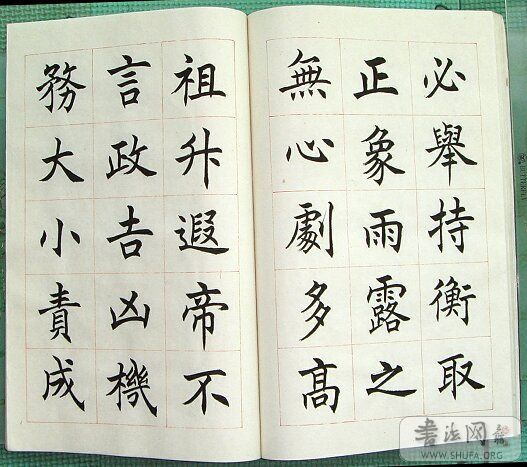 必舉持衡取
正象雨露之
無心劇多高
祖升遐帝不
言政吉凶機
務大小責成
书法网
WWW.SHUFA.ORG